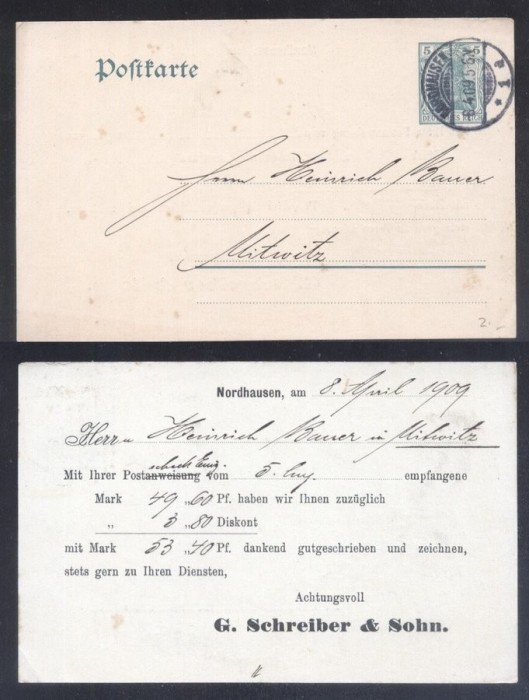 Postkarte
5 5
NORDHAUSEN
8.4.09.5-6N.
* 1 *
Herrn Heinrich Bauer
Mitwitz
2.-
Nordhausen, am 8. April 1909
Herrn Heinrich Bauer in Mitwitz
Mit Ihrer Postanweisung vom 5. empfangene
Mark 49 „60 Pf. haben wir Ihnen zuzüglich
„ 3 „80 Diskont
mit Mark 53 „40 Pf. dankend gutgeschrieben und zeichnen,
stets gern zu Ihren Diensten,
Achtungsvoll
G. Schreiber & Sohn.